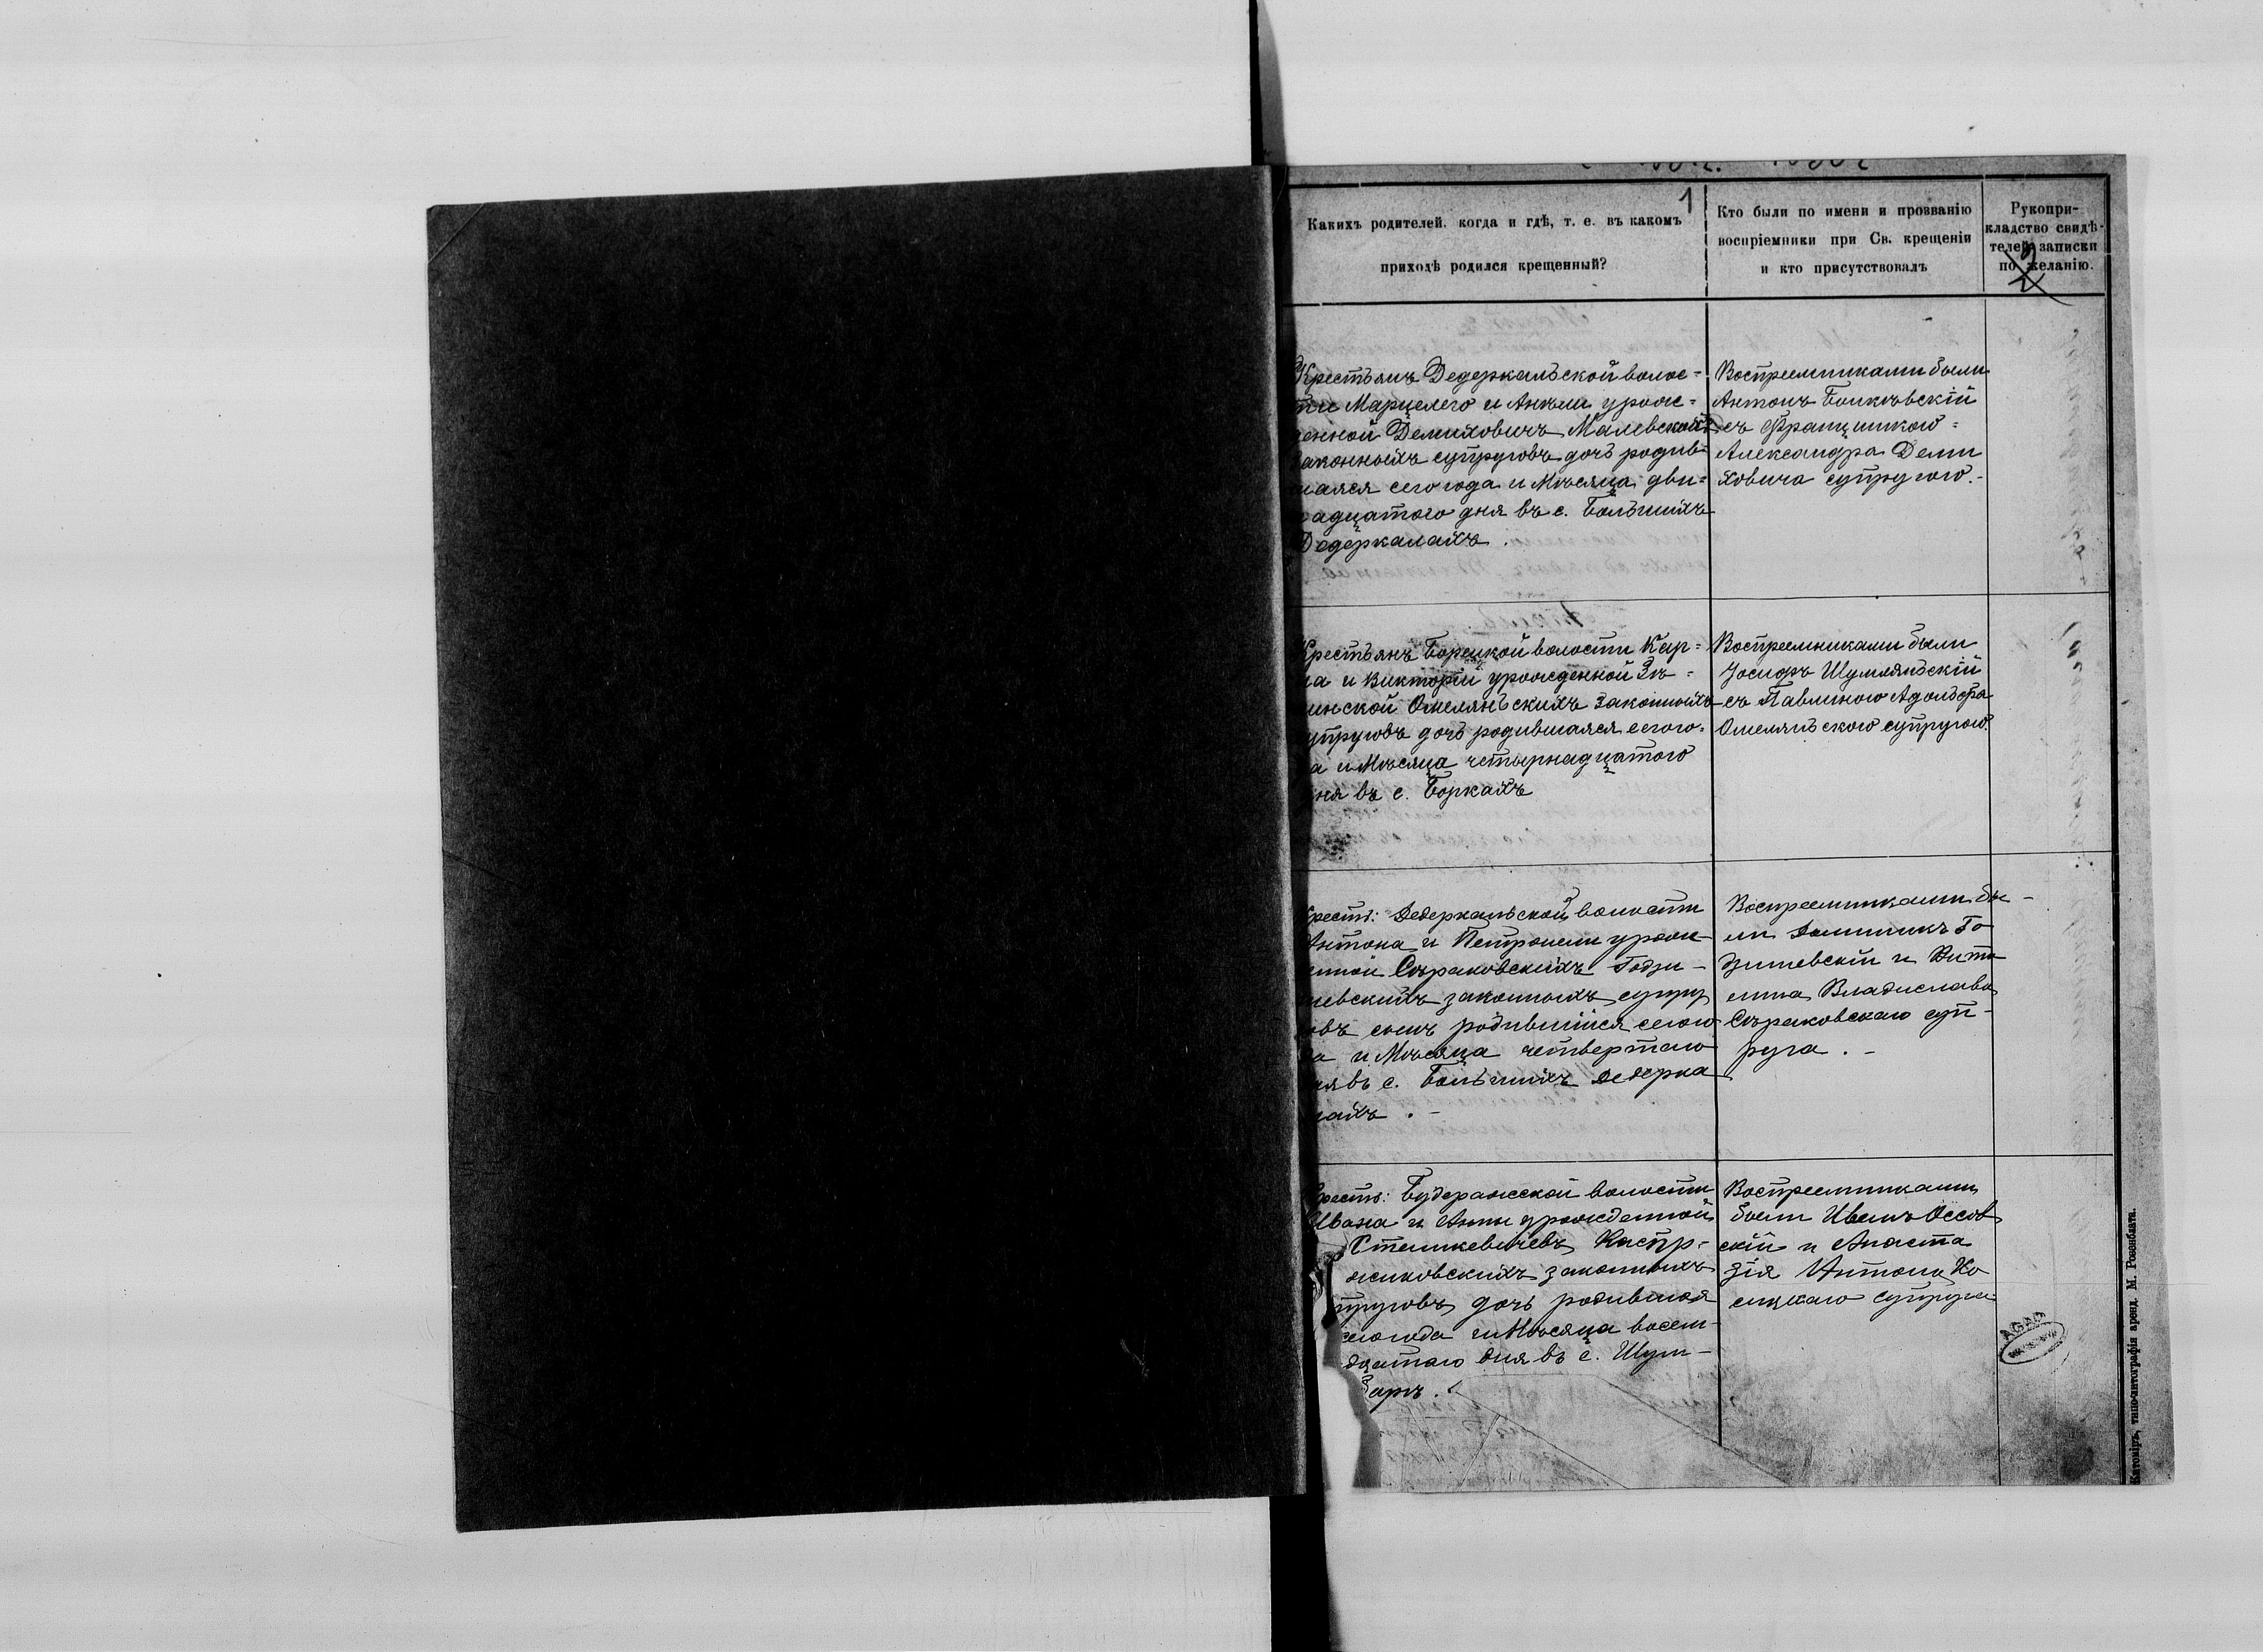 1
Какихъ родителей, когда и гдѣ, т. е. въ какомъ
приходѣ родился крещенный?
Кто были по имени и прозванію
воспріемники при Св. крещеніи
и кто присутствовалъ
Рукопри-
кладство свидѣ-
телей записки
по желанію.
2
Крестьянъ Дедеркальской волос-
ти Марцелего и Анели урож-
енной Демиховичъ Малевскихъ
аконныхъ супруговъ дочь родив-
шаяся сего года и Мѣсяца два-
адцатого дня въ с. Большихъ
Дедеркалахъ.
Воспреемниками были
Антонъ Боиковскій
съ Францишкою
Александра Деми
ховича супругою.-
Крестьянъ Борецкой волости Кар-
а и Викторіи урожденной
инской Омелянскихъ законныхъ
упруговъ дочь родившаяся сего го-
а и Мѣсяца четырнадцатого
ня въ с. Боркахъ
Воспреемниками были
Іосифъ Шумлянскій
съ Павлиною Адольфа
Омелянского супругою.
рест: Дедеркальской волости
Антона и Петронели урож-
енной Сѣраковскихъ Годзи-
шевскихъ законныхъ супру
овъ сынъ родившійся сего го
а и Мѣсяца четвертаго
ня въ с. Большихъ Дедерка
лахъ.-
Воспреемниками бы-
ли Доминикъ Го
дзишевскій и
Владислава
Сѣраковскаго суп-
руга.-
рест: Будеражской волости
Ивана и Анны урожденной
Стешкевичевъ Каспр-
жиковскихъ законныхъ
пруговъ дочь родившаяся
сего года и Мѣсяца восем-
дцатаго дня въ с. Шум-
барѣ.
Воспреемниками
были Иванъ Оссов
скій и Анаста
зія Антона Ко
сицкаго супруга
AGAD
Житоміръ, типо-литографія аренд. М. Розенблата.